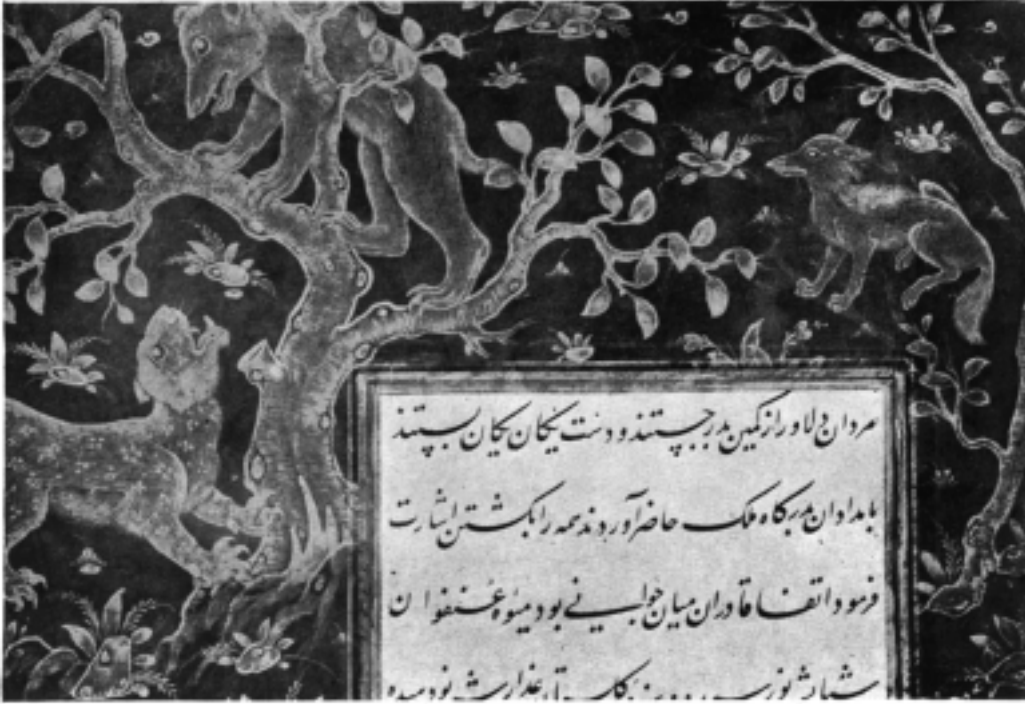 مردان دلاور از کمین بدر جستند و دست یکان یکان ببستند
بامدادان بدرگاه ملک حاضر آوردند همه را بکشتن اشارت
فرمود اتفاقا دران میان جوانی بود میوه عنفوان
شبابش نو رسیده و